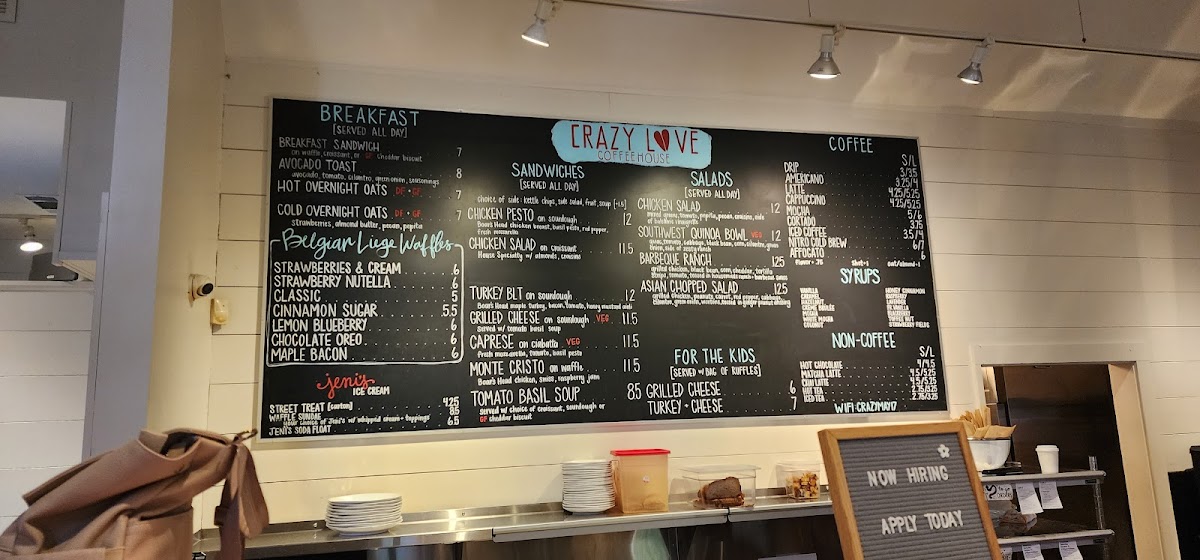 BREAKFAST
[SERVED ALL DAY]
BREAKFAST SANDWICH 7
on waffle, croissant, or GF cheddar biscuit
AVOCADO TOAST 8
avocado, tomato, cilantro, green onion, seasonings
HOT OVERNIGHT OATS DF • GF 7
COLD OVERNIGHT OATS DF • GF 7
strawberries, almond butter, pecan, pepita
Belgian Liege Waffles
STRAWBERRIES & CREAM 6
STRAWBERRY NUTELLA 6
CLASSIC 5
CINNAMON SUGAR 5.5
LEMON BLUEBERRY 6
CHOCOLATE OREO 6
MAPLE BACON 6
jeni's
ICE CREAM
STREET TREAT [carton] 4.25
WAFFLE SUNDAE 8.5
your choice of Jeni's w/ whipped cream + toppings
JENI'S SODA FLOAT 6.5
CRAZY LOVE
COFFEEHOUSE
SANDWICHES
[SERVED ALL DAY]
choice of side: kettle chips, side salad, fruit, soup [+1.5]
CHICKEN PESTO on sourdough 12
Boar's Head chicken breast, basil pesto, red pepper,
fresh mozzarella
CHICKEN SALAD on croissant 11.5
House Specialty w/ almonds, craisins
TURKEY BLT on sourdough 12
Boar's Head maple turkey, bacon, tomato, honey mustard aioli
GRILLED CHEESE on sourdough VEG 11.5
served w/ tomato basil soup
CAPRESE on ciabatta VEG 11.5
fresh mozzarella, tomato, basil pesto
MONTE CRISTO on waffle 11.5
Boar's Head chicken, swiss, raspberry jam
TOMATO BASIL SOUP 8.5
served w/ choice of croissant, sourdough or
GF cheddar biscuit
SALADS
[SERVED ALL DAY]
CHICKEN SALAD 12
mixed greens, tomato, pepita, pecan, craisins, side
of balsamic vinaigrette
SOUTHWEST QUINOA BOWL VEG 12
corn, tomato, cabbage, black bean, cilantro, green
onion, side of zesty ranch
BARBEQUE RANCH 12.5
grilled chicken, black bean, corn, cheddar, tortilla
strips, tomato, tossed in housemade ranch + barbeque sauce
ASIAN CHOPPED SALAD 12.5
grilled chicken, peanuts, carrot, red pepper, cabbage,
cilantro, green onion, wontons, tossed in ginger peanut dressing
FOR THE KIDS
[SERVED w/ BAG OF RUFFLES]
GRILLED CHEESE 6
TURKEY + CHEESE 7
COFFEE
S/L
DRIP 3/3.5
AMERICANO 3.25/4
LATTE 4.25/5.25
CAPPUCCINO 4.25/5.25
MOCHA 5/6
CORTADO 3.75
ICED COFFEE 3.5/4
NITRO COLD BREW 6
AFFOGATO 6/7
flavor + .75 shot + 1 oat/almond + 1
SYRUPS
VANILLA
CARAMEL
HAZELNUT
CREME BRULEE
MOCHA
WHITE MOCHA
COCONUT
HONEY CINNAMON
RASPBERRY
LAVENDER
SF VANILLA
BLACKBERRY
TOFFEE NUT
STRAWBERRY FIELDS
NON-COFFEE
S/L
HOT CHOCOLATE 4/4.5
MATCHA LATTE 4.5/5.25
CHAI LATTE 4.5/5.25
HOT TEA 2.75/3.25
ICED TEA 2.75/3.25
WIFI: CRAZYMAY17
NOW HIRING
APPLY TODAY